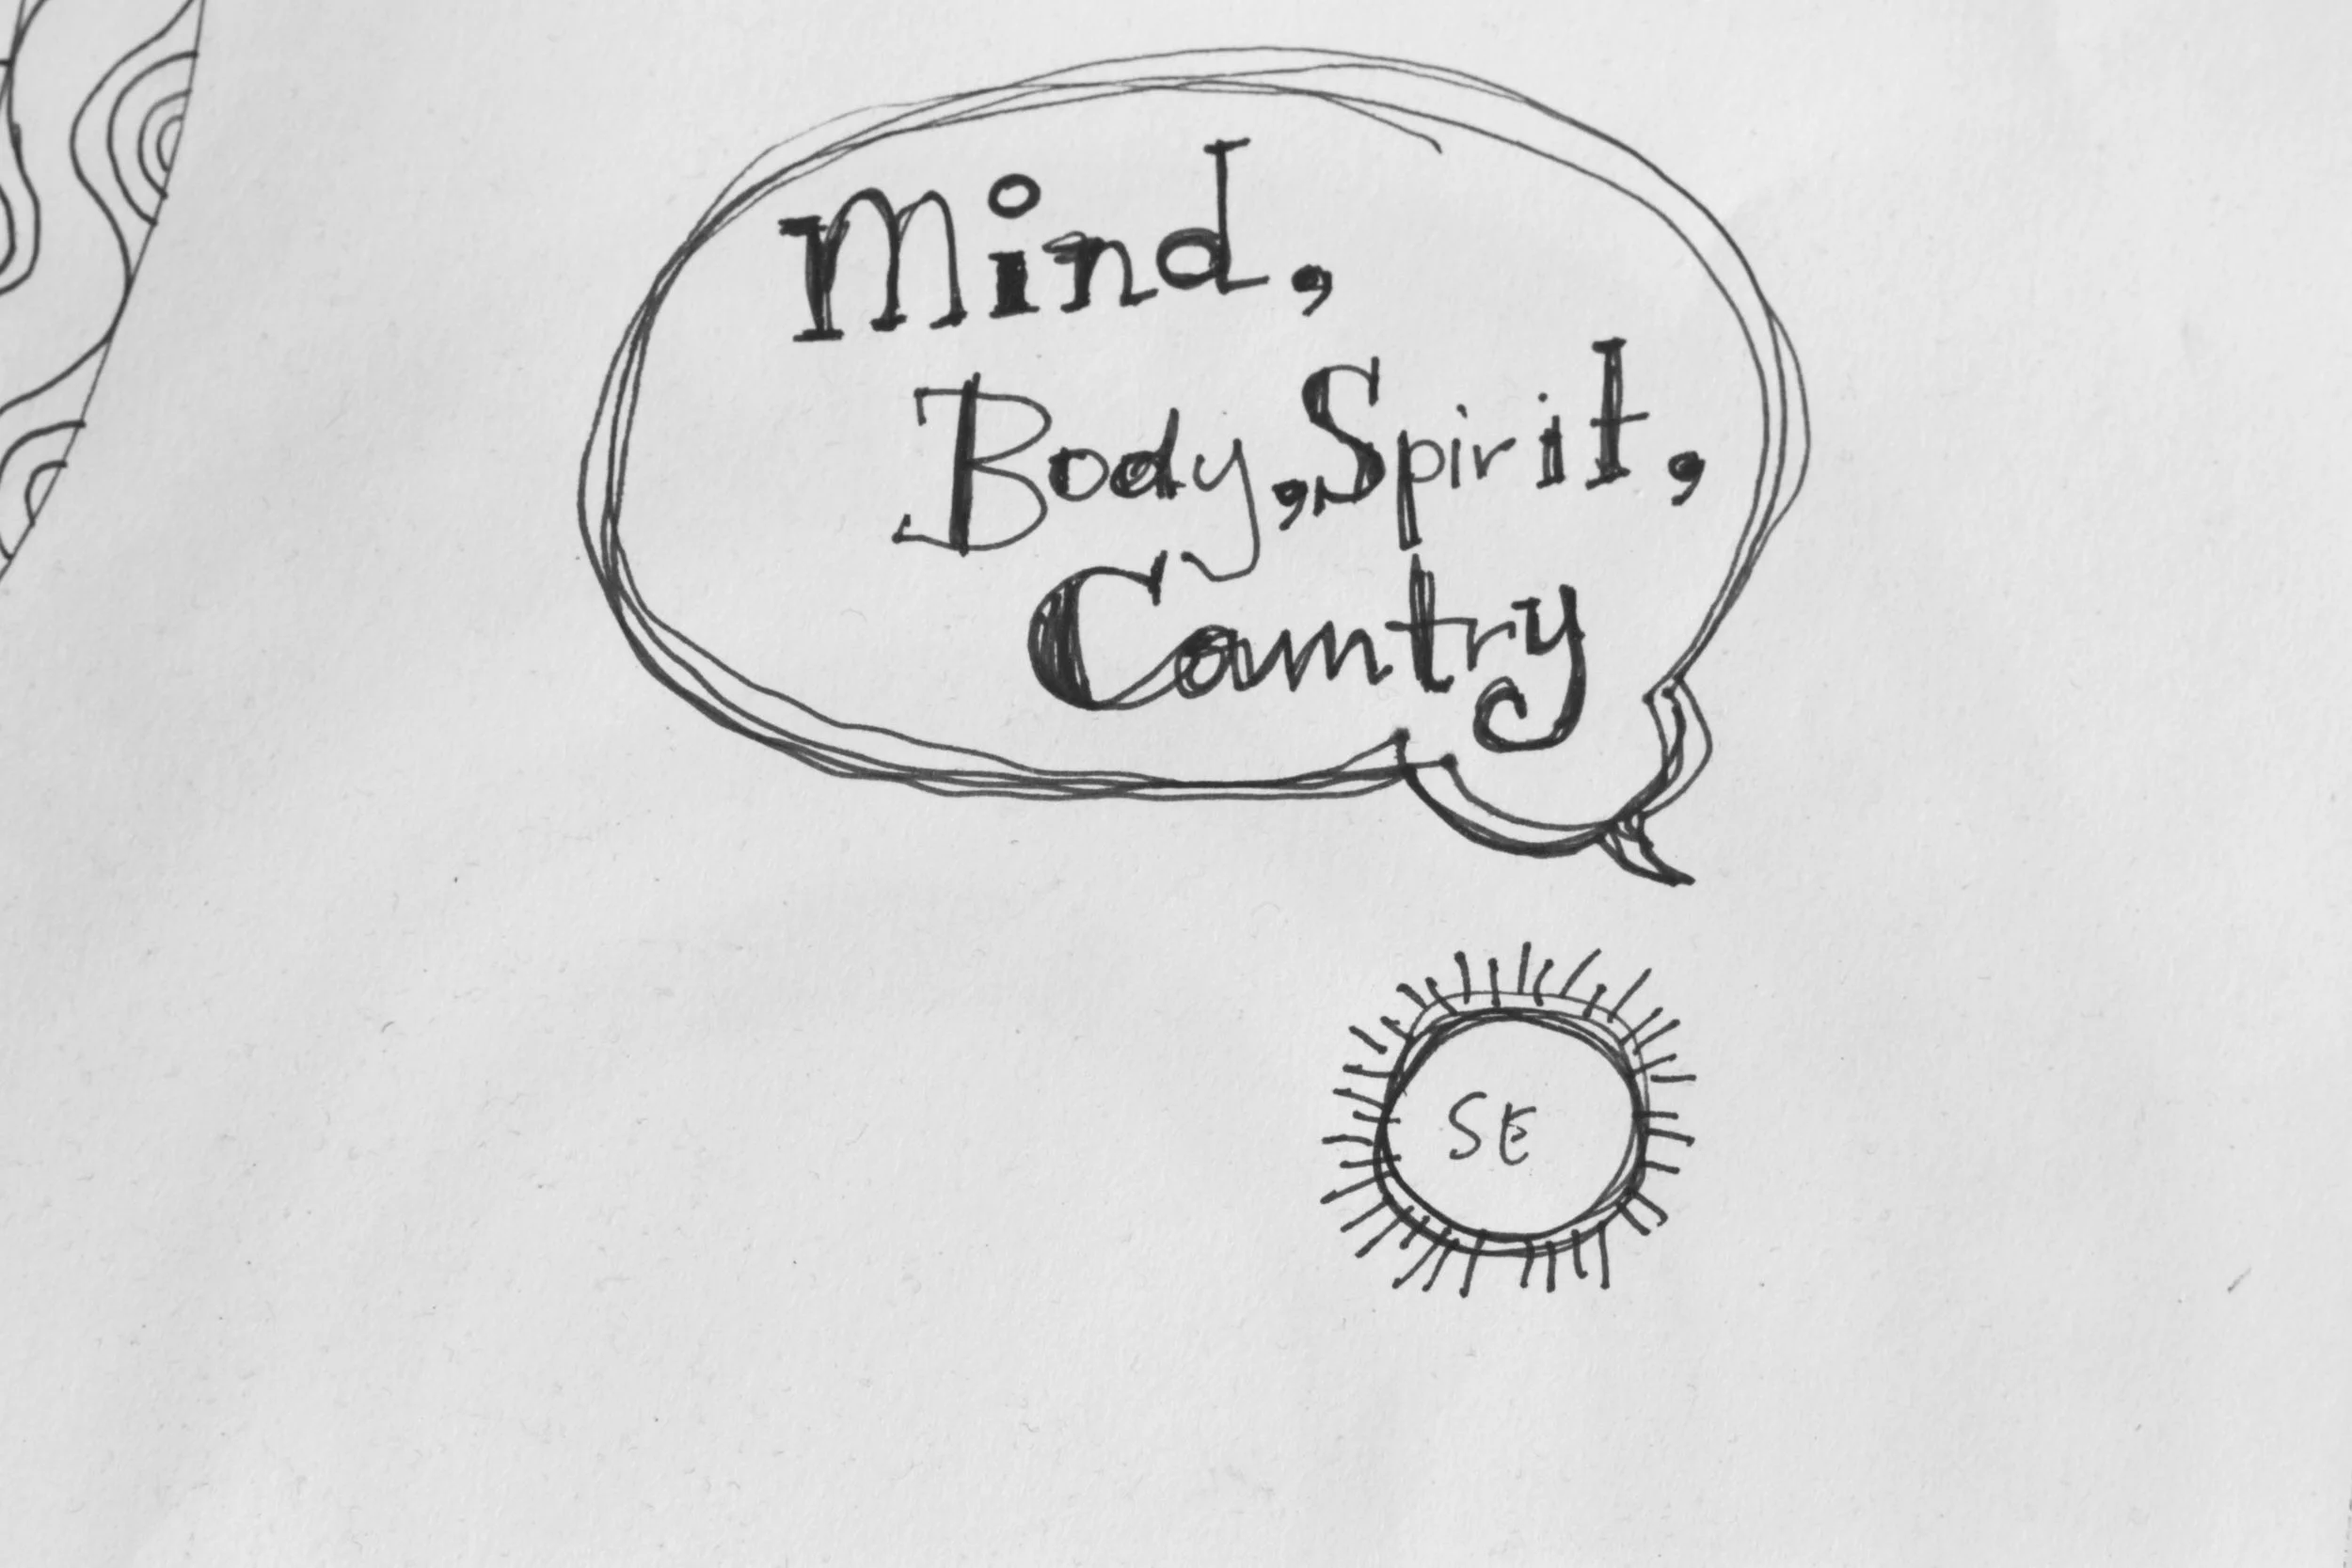 Mind,
Body, Spirit,
Country
SE